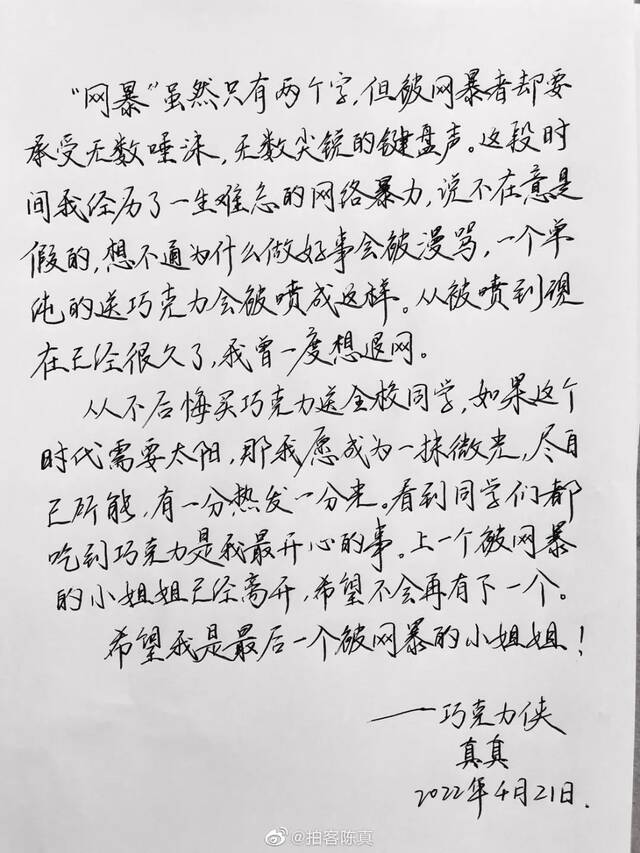 “网暴”虽然只有两个字,但被网暴者却要
承受无数唾沫,无数尖锐的键盘声。这段时
间我经历了一生难忘的网络暴力,说不在意是
假的,想不通为什么做好事会被漫骂,一个单
纯的送巧克力会被喷成这样。从被喷到现
在已经很久了,我曾一度想退网。
从不后悔买巧克力送全校同学,如果这个
时代需要太阳,那我愿成为一抹微光,尽自
己所能,有一分热发一分光。看到同学们都
吃到巧克力是我最开心的事。上一个被网暴
的小姐姐已经离开,希望不会再有下一个。
希望我是最后一个被网暴的小姐姐!
——巧克力侠
真真
2022年4月21日.
@拍客陈真